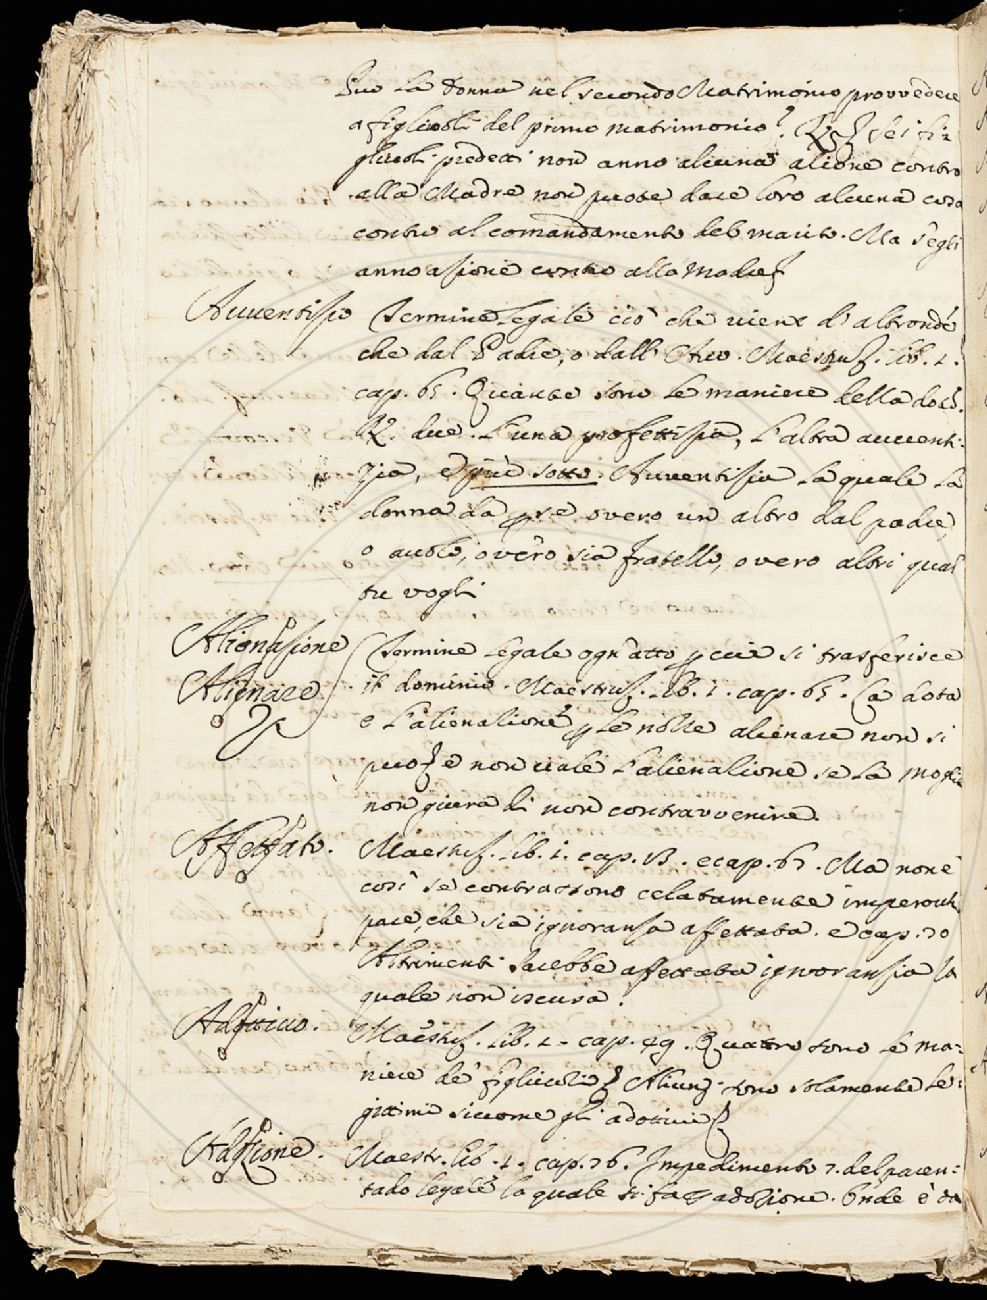 Puo la donna nel secondo Matrimonio provvedere
a figliuoli del primo matrimonio? se i fi=
gliuoli predetti non anno alcuna azione contro
alla Madre non puote dare loro alcuna cosa
contro al comandamento del marito. Ma s'egli
anno azione contro alla Madre
Avventizio Termine legale ciò che viene d'altronde
che dal Padre, o dall'Avo. Maestruz. lib. 1.
cap. 65. Quante sono le maniere della dota.
R. due. L'una profettizia, l'altra avventi=
zia, e più sotto. Avventizia la quale la
donna dà per se, overo un altro dal padre,
o avolo, overo sia fratello, overo altri qual
tu vogli
Alienazione Termine legale ogn'atto per cui si trasferisce
Alienare il dominio. Maestruz. lib. 1. cap. 65. La dota
e l'alienazione per le nolle alienare non si
può e non vale l'alienazione se la moglie
non giura di non contravvenire
Affettato. Maestruz. lib. 1. cap. 53. e cap. 67. Ma non è
così se contraggono celatamente imperoch
pare, che sia ignoranza affettata. e cap. 70
Altrimenti sarebbe affettata ignoranzia la
quale non iscusa.
Adottivo. Maestruz. lib. 1. cap. 49. Quattro sono le ma=
niere de' figliuoli Alcuni sono solamente le=
gittimi siccome gli adottivi
Adozione. Maestr. lib. 1. cap. 76. Impedimento 7. del paren=
tado legale lo quale si fa per adozione. Onde è da